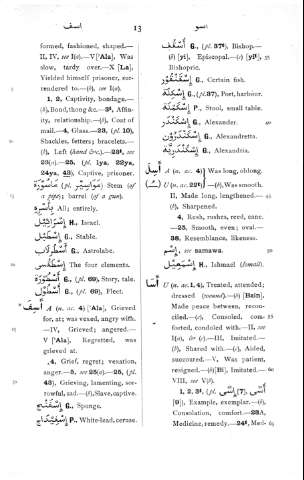 أسف
13
أسو
formed, fashioned, shaped.—
II, IV, see I(a).—V [ʿAla], Was
slow, tardy over.—X [La],
Yielded himself prisoner, sur-
rendered to.—(b), see I(a).
1, 2, Captivity, bondage.—
(b), Bond, thong &c.—3ᵃ, Affin-
ity, relationship.—(b), Coat of
mail.—4, Glass.—23, (pl. 10),
Shackles, fetters; bracelets.—
(b), Left (hand &c.).—
23(a).—25, (pl. 1ya, 22ya,
24ya, 43), Captive, prisoner.
(pl. مواسير) Stem (of
a pipe); barrel (of a gun).
بأسره All; entirely.
إسرائيل H., Israel.
إسطبل G., Stable.
أسطرلاب G., Astrolabe.
The four elements.
G., (pl. 69), Story, tale.
أسطول G., (pl. 69), Fleet.
أسف A (n. ac. 4) [ʿAla], Grieved
for, at; was vexed, angry with.
—IV, Grieved; angered.—
V [ʿAla], Regretted, was
grieved at.
4, Grief, regret; vexation,
anger.—5, see 25(a).—25, (pl.
43), Grieving, lamenting, sor-
rowful, sad.—(b), Slave, captive.
إسفنج G., Sponge.
إسفيداج P., White-lead, ceruse.
أسقف G., (pl. 37ᵗ), Bishop.—
(b) [yi], Episcopal.—(c) [yiᵗ],
Bishopric.
إسقنقور G., Certain fish.
إسكلة G., (pl. 37), Port, harbour.
P., Stool, small table.
إسكندر G., Alexander.
إسكندرون G., Alexandretta.
إسكندرية G., Alexandria.
أسل A (n. ac. 4) Was long, oblong.
U (n. ac. 22ᵗ)—(b), Was smooth.
II, Made long, lengthened.—
(b), Sharpened.
4, Rush, rushes, reed, cane.
—25, Smooth, even; oval.—
36, Resemblance, likeness.
إسم, see samawa.
إسمعيل H., Ishmael (Ismail).
أسا U (n. ac. 1, 4), Treated, attended;
dressed (wound).—(b) [Bain],
Made peace between, recon-
ciled.—(c), Consoled, com-
forted, condoled with.—II, see
I(a), & (c).—III, Imitated.—
(b), Shared with.—(c), Aided,
succoured.—V, Was patient,
resigned.—(b) [Bi], Imitated.—
VIII, see V(b).
1, 2, 3ᵗ, (pl. [7],
[9]), Example, exemplar.—(b),
Consolation, comfort.—23A,
Medicine, remedy.—24ᵗ, Med-